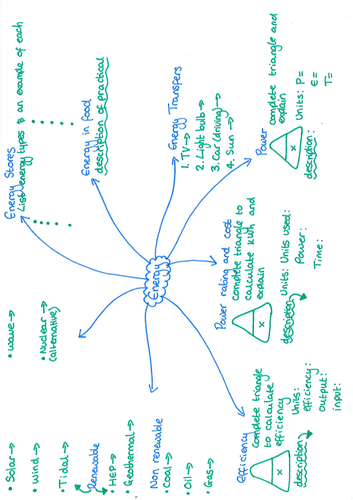 Energy
Energy Stores
List energy types & an example of each
•
•
•
•
•
•
•
•
Energy in food
description of practical
Energy Transfers
1. TV →
2. Light bulb →
3. Car (driving) →
4. Sun →
Power
complete triangle and
explain
x
Units: P=
E=
T=
description:
Power rating and cost
complete triangle to
calculate kWh and
explain
x
Units: Units used:
Power:
Time:
description
Efficiency
complete triangle
to calculate
efficiency
x
Units:
efficiency:
output:
input:
description
Non renewable
• Coal →
• Oil →
• Gas →
Renewable
• Solar →
• Wind →
• Tidal →
• HEP →
• Geothermal →
• Wave →
• Nuclear →
(alternative)